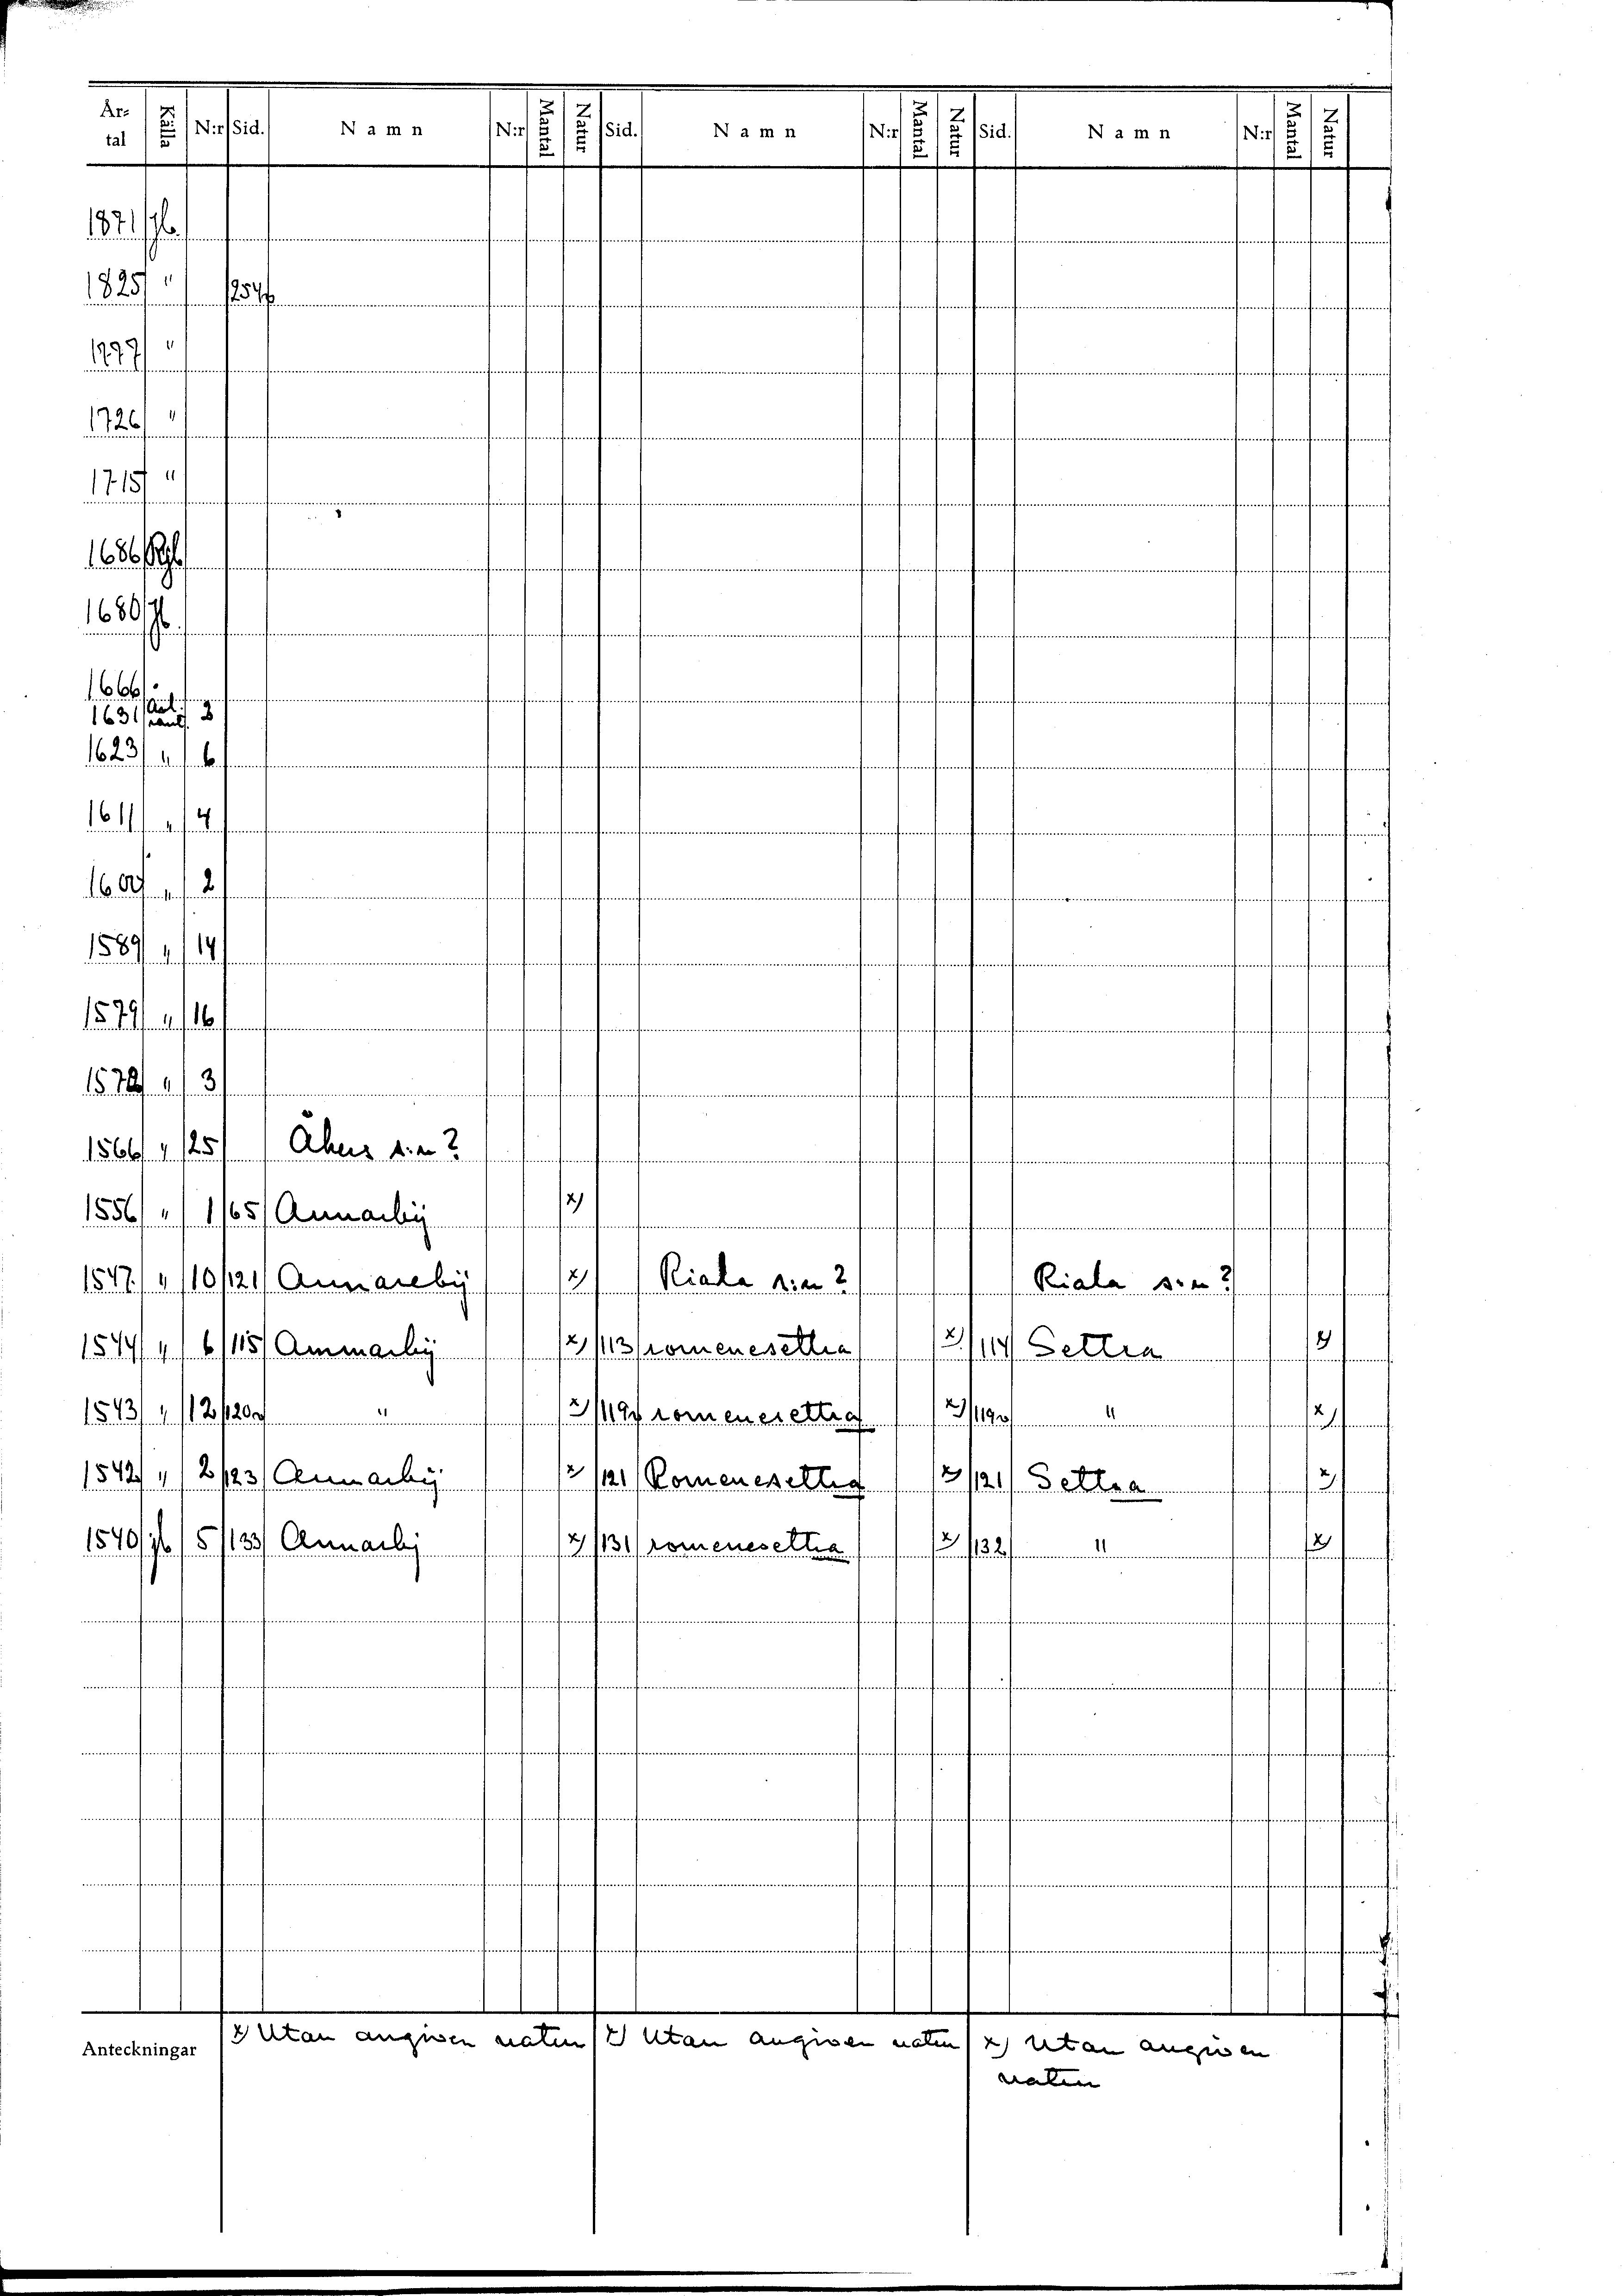 År-tal Källa N:r Sid. Namn N:r Mantal Natur Sid. Namn N:r Mantal Natur Sid. Namn N:r Mantal Natur
1871 Jb.
1825 " 254
1777 "
1726 "
1715 "
1686 Rgb
1680 Jb.
1666 "
1631 3
1623 " 6
1611 " 4
1600 " 2
1589 " 14
1579 " 16
1572 " 3
1566 " 25 Åkers s:n?
1556 " 1 65 Annarbÿ x)
1547 " 10 121 Annarebÿ x) Riala s:n? Riala s:n?
1544 " 6 115 Ammarbÿ x) 113 romenesettra x) 114 Settra x)
1543 " 12 120v " x) 119v romenesettra x) 119v " x)
1542 " 2 123 Annarbÿ x) 121 Romenesettra x) 121 Settra x)
1540 jb 5 133 Annarbj x) 131 romenesettra x) 132 " x)
Anteckningar x) Utan angiven natur x) Utan angiven natur x) Utan angiven
natur